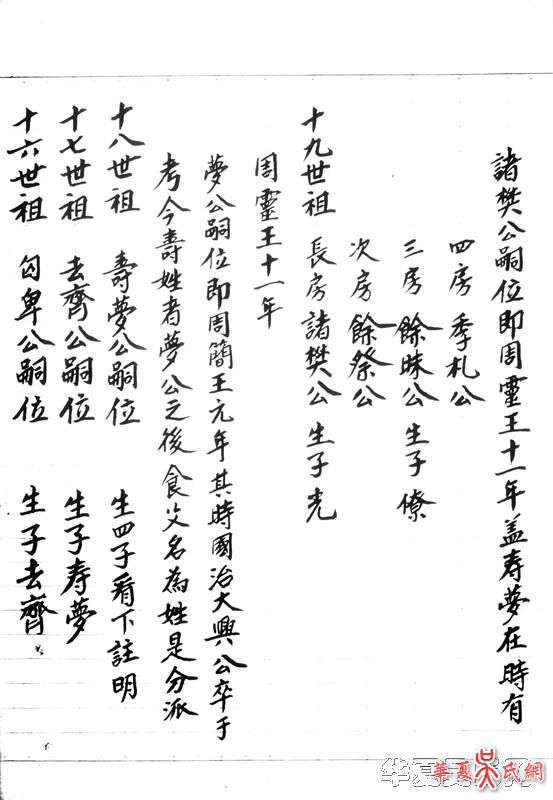 十六世祖 句卑公嗣位 生子去齊
十七世祖 去齊公嗣位 生子寿夢
十八世祖 壽夢公嗣位 生四子看下註明
考今壽姓者夢公之後食父名為姓是分派
夢公嗣位即周簡王元年其時國治大興公卒于
周靈王十一年
十九世祖 長房諸樊公 生子光
次房 餘祭公
三房 餘昧公 生子僚
四房 季札公
諸樊公嗣位即周靈王十一年盖寿夢在時有
華夏吳氏網